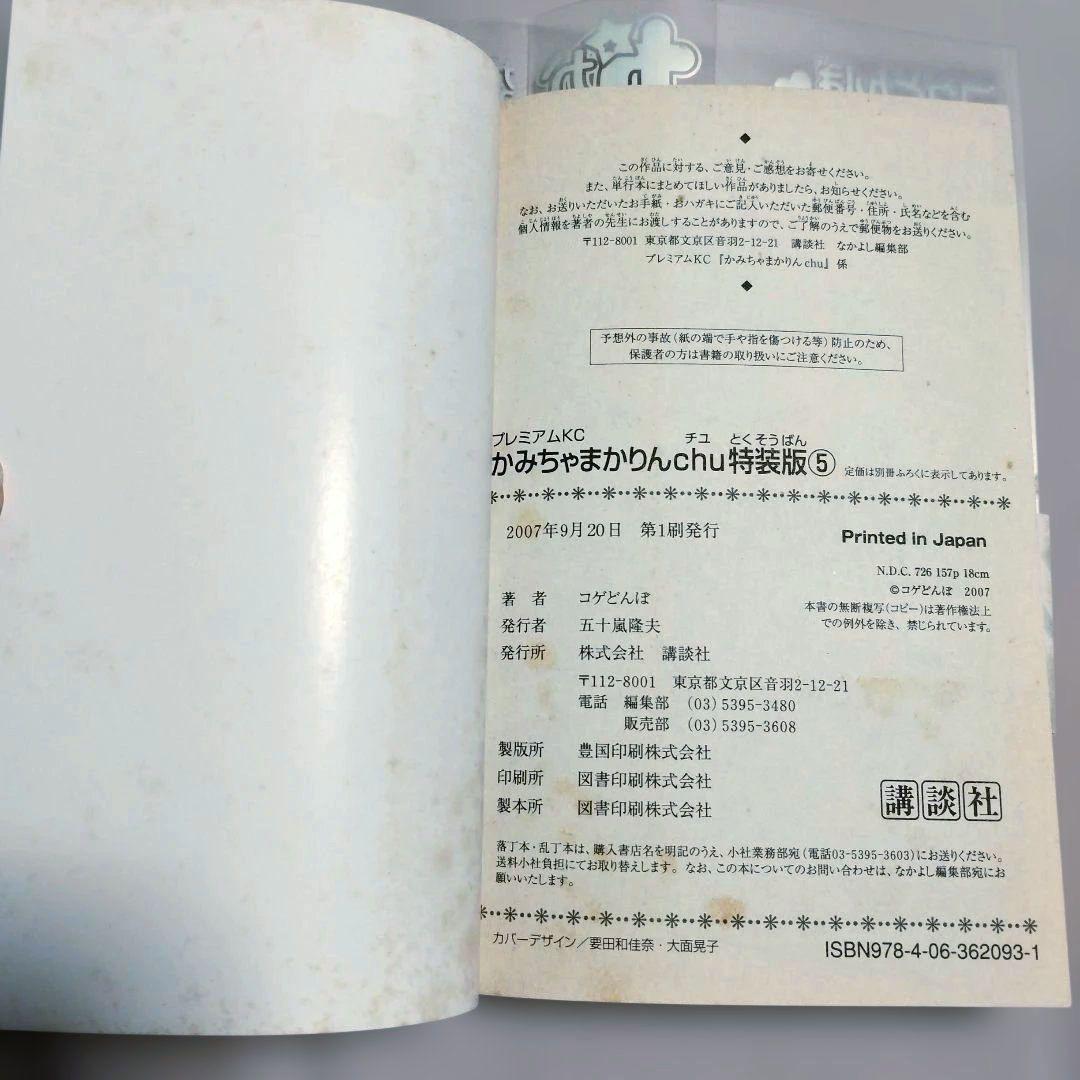 ◆
この作品に対する、ご意見・ご感想をお寄せください。
また、単行本にまとめてほしい作品がありましたら、お知らせください。
なお、お送りいただいたお手紙・おハガキにご記入いただいた郵便番号・住所・氏名などを含む
個人情報を著者の先生にお渡しすることがありますので、ご了解のうえで郵便物をお送りください。
〒112-8001 東京都文京区音羽2-12-21 講談社 なかよし編集部
プレミアムKC『かみちゃまかりんchu』係
◆
予想外の事故(紙の端で手や指を傷つける等)防止のため、
保護者の方は書籍の取り扱いにご注意ください。
プレミアムKC チユ とくそうばん
かみちゃまかりんchu特装版⑤ 定価は別冊ふろくに表示してあります。
2007年9月20日 第1刷発行
Printed in Japan
N.D.C. 726 157p 18cm
©コゲどんぼ 2007
本書の無断複写(コピー)は著作権法上
での例外を除き、禁じられています。
著者 コゲどんぼ
発行者 五十嵐隆夫
発行所 株式会社 講談社
〒112-8001 東京都文京区音羽2-12-21
電話 編集部 (03)5395-3480
販売部 (03)5395-3608
製版所 豊国印刷株式会社
印刷所 図書印刷株式会社
製本所 図書印刷株式会社
講談社
落丁本・乱丁本は、購入書店名を明記のうえ、小社業務部宛(電話03-5395-3603)にお送りください。
送料小社負担にてお取り替えします。なお、この本についてのお問い合わせは、なかよし編集部宛にお
願いいたします。
カバーデザイン/要田和佳奈・大面晃子
ISBN978-4-06-362093-1